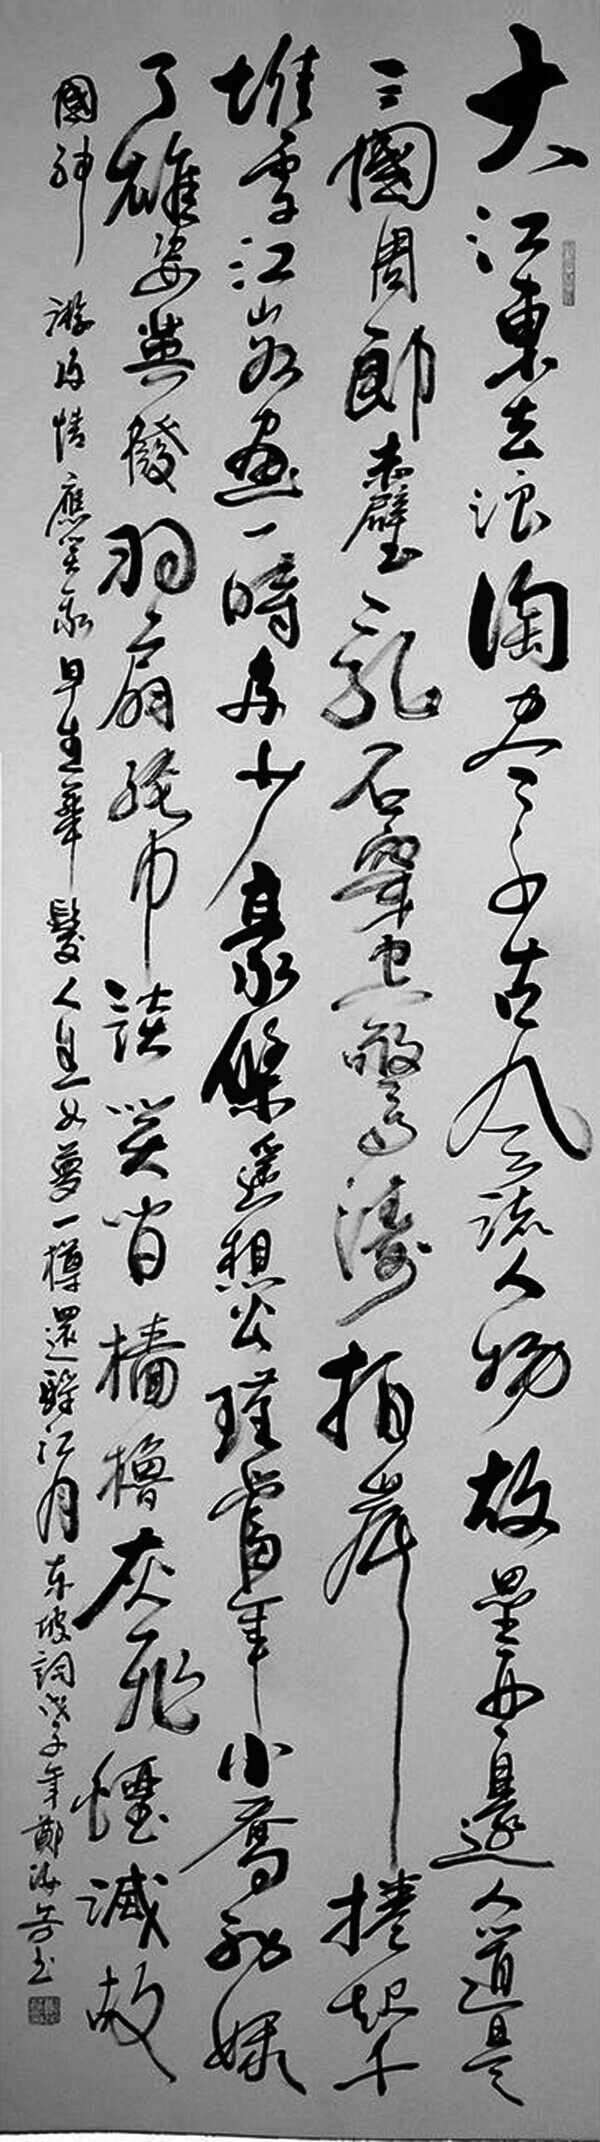 大江東去浪淘尽千古风流人物故壘西邊人道是
三國周郎赤壁乱石穿空驚濤拍岸捲起千
堆雪江山如畫一時多少豪傑遥想公瑾當年小喬初嫁
了雄姿英發羽扇綸巾談笑間檣櫓灰飛煙滅故
國神游多情應笑我早生華髮人生如夢一樽還酹江月东坡詞戊子年鄭海岳书